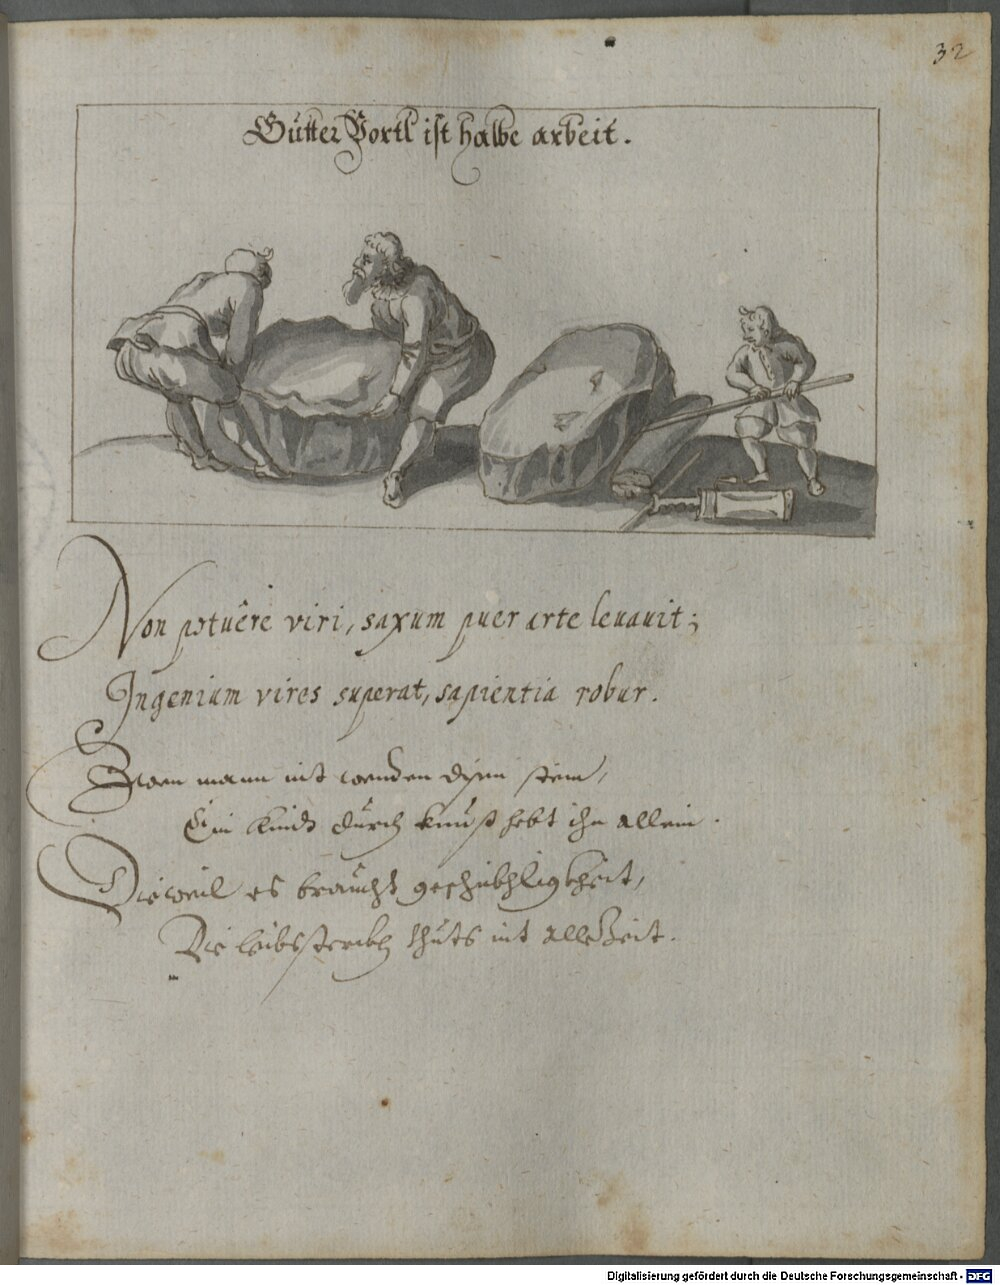 32
Gütter Vortl ist halbe arbeit.
Non potuêre viri, saxum puer arte leuauit;
Ingenium vires superat, sapientia robur.
Zwen mann nit wenden disen stein,
Ein Kindt durch kunst hebt ihn allein.
Dieweil es braucht geschickhligkheit,
Die leibssterckh thuts nit alle Zeit.
Digitalisierung gefördert durch die Deutsche Forschungsgemeinschaft - DFG